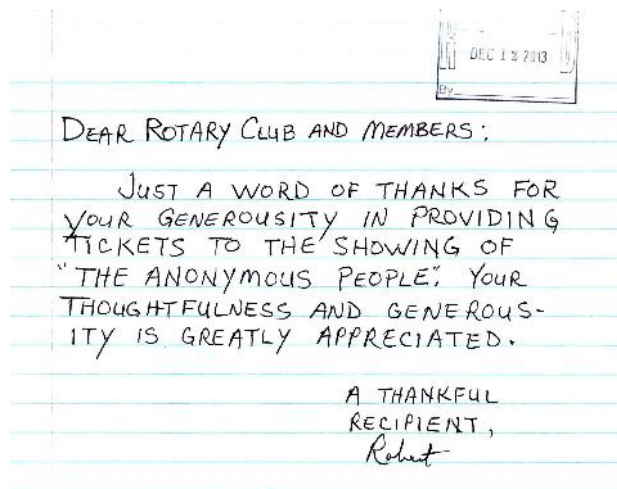 DEC 12 2013
By
DEAR ROTARY CLUB AND MEMBERS:
JUST A WORD OF THANKS FOR
YOUR GENEROUSITY IN PROVIDING
TICKETS TO THE SHOWING OF
"THE ANONYMOUS PEOPLE". YOUR
THOUGHTFULNESS AND GENEROUS-
ITY IS GREATLY APPRECIATED.
A THANKFUL
RECIPIENT,
Robert